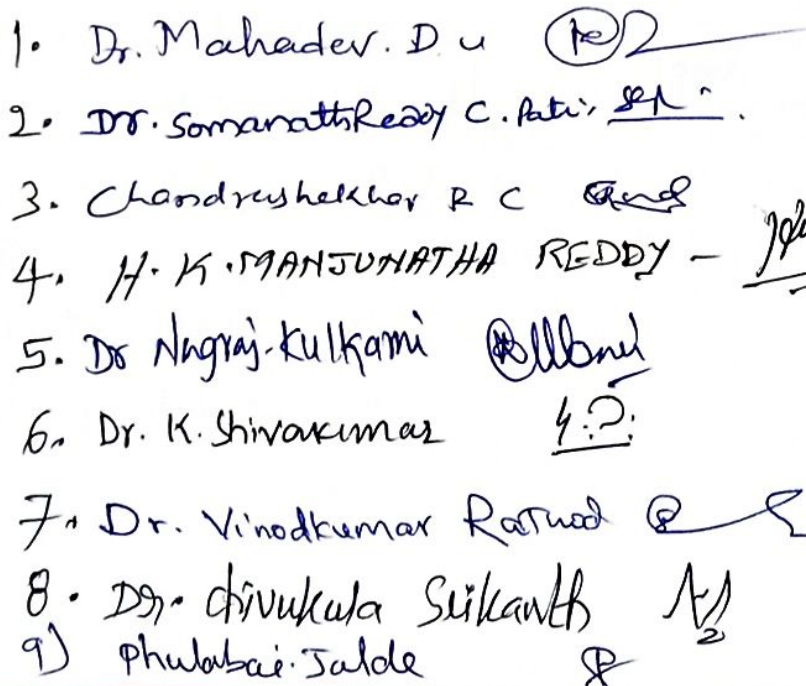 1. Dr. Mahadev. D u
2. Dr. Somanath Reddy C. Patil
3. Chandrashekhar R C
4. H. K. MANJUNATHA REDDY -
5. Dr Nagraj. Kulkarni
6. Dr. K. Shivakumar
7. Dr. Vinodkumar Rathod
8. Dr. Chivukula Srikanth
9) Phulabai. Jalde